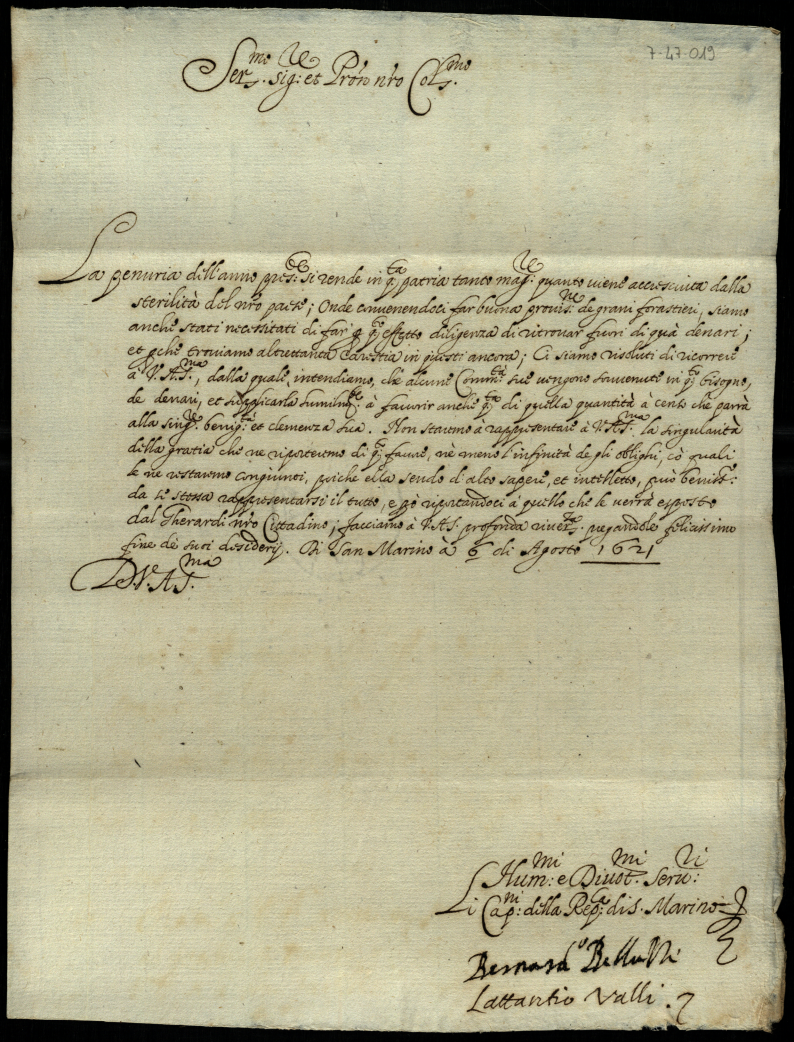 7-47-019
Ser.mo Sig.re et Pron nro Col.mo
La penuria dell'anno pres.te si rende in q.ta patria tanto mag.re quanto viene accresciuta dalla
sterilità del nro paese; Onde convenendoci far buona provis.ne de grani forastieri, siamo
anche stati necessitati di far p q.o effetto diligenza di ritrovar fuori di quà denari;
et pche troviamo altrettanta carestia in questi ancora; Ci siamo risoluti di ricorrere
à V.A.S.ma, dalla quale intendiamo, che alcune Comm.tà sue vengono sovvenute in q.to bisogno,
de denari, et supplicarla humilm.te à favorir anche q.a di quella quantità à cento che parrà
alla sing.re benig.tà et clemenza sua. Non staremo à rappresentare à V.A.S.ma la singularità
della gratia che ne riporteremo di q.o favore, nè meno l'infinità de gli oblighi, cò quali
le ne restaremo congiunti, poiche ella sendo di alto sapere, et intelletto, può beniss.o
da se stessa rappresentarsi il tutto, e pò riportandoci à quello che le verrà esposto
dal Gherardi nro Cittadino; facciamo à V.A.S. profonda river.za pregandole felicissimo
fine de suoi desiderij. Di San Marino à 6 di Agosto 1621
D.V.A.S.ma
Hum.mi e Divot.mi Serv.ri
Li Cap.ni della Rep.ca di S. Marino
Bernard.o Belluzzi
Lattantio Valli